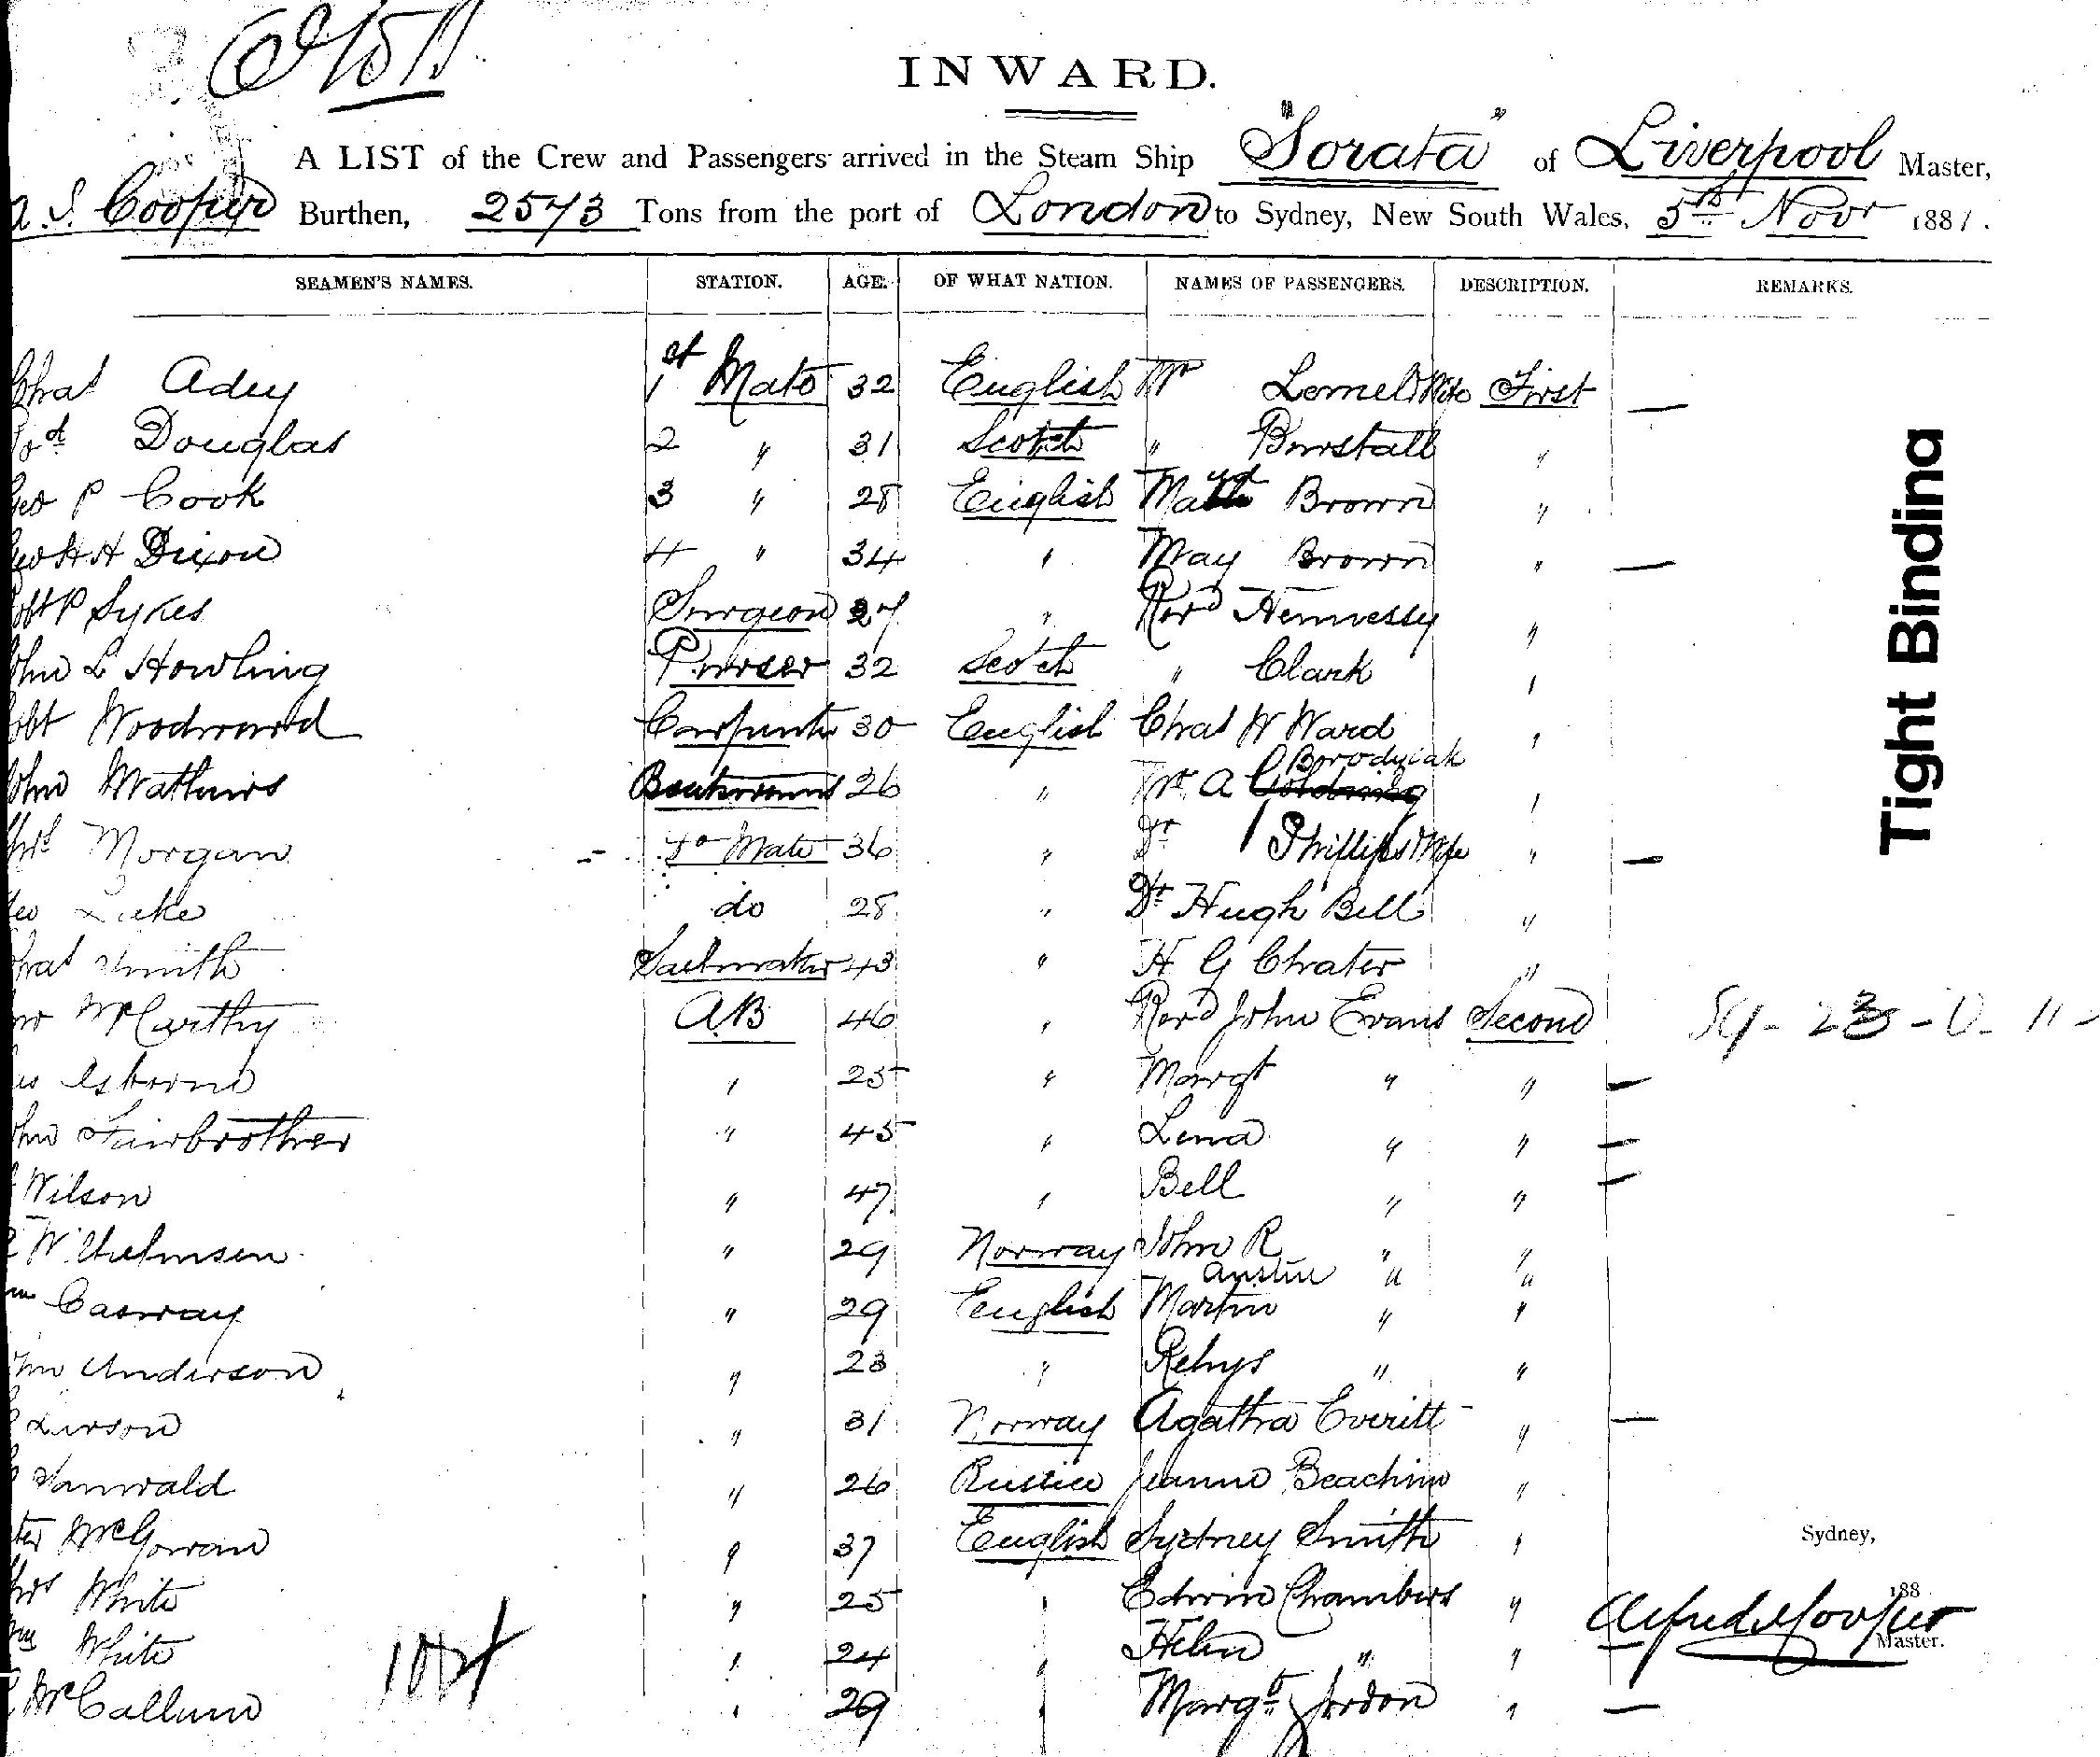 INWARD.
A LIST of the Crew and Passengers arrived in the Steam Ship "Sorata" of Liverpool Master,
A. S. Cooper Burthen, 2573 Tons from the port of London to Sydney, New South Wales, 5th Novr 1881.
SEAMEN'S NAMES. STATION. AGE. OF WHAT NATION. NAMES OF PASSENGERS. DESCRIPTION. REMARKS.
Chas Adey 1st Mate 32 English Mr Wife First —
Douglas 2 " 31 Scotch " Burstall "
Geo P Cook 3 " 28 English Brown "
Geo H H Dixon 4 " 34 " May Brown " —
Robt P Sykes Surgeon 27 " Revd Hennessy "
John L Howling Purser 32 Scotch " Clark "
Robt Woodward Carpenter 30 English Chas W Ward "
Borodyiak
John Mathews Boatswain 26 " Mr A "
Morgan Do Mate 36 " Dr Phillips & Wife " —
Geo Luke do 28 " Dr Hugh Bell "
Chas Smith 43 " H G Chater "
McCarthy AB 46 " Revd John Evans Second
Osborne " 25 " Margt " " —
John Fairbrother " 45 " Lena " " —
Wilson " 47 " Bell " " —
Wilhelmsen " 29 Norway John R " "
Austin " "
Casway " 29 English Martin " "
John Anderson " 23 " " "
Larson " 31 Norway Agatha Everitt " —
" 26 Beachino "
McGowan " 37 English Sydney Smith "
Sydney,
Thos White " 25 " Edwin Chambers "
188
Wm White " 24 " Helen " "
Alfred Cooper
Master.
McCallum " 29 " Margt Jordon " —
Tight Binding